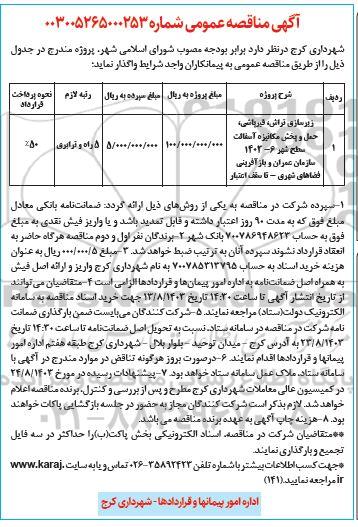 آگهی مناقصه عمومی شماره ۰۰۳۰۰۵۲۶۵۰۰۰۲۵۳
شهرداری کرج درنظر دارد برابر بودجه مصوب شورای اسلامی شهر، پروژه مندرج در جدول
ذیل را از طریق مناقصه عمومی به پیمانکاران واجد شرایط واگذار نماید:
ردیف شرح پروژه مبلغ پروژه به ریال مبلغ سپرده به ریال رتبه لازم نحوه پرداخت قرارداد
۱ زیرسازی تراش، قیرپاشی، حمل و پخش مکانیزه آسفالت سطح شهر ۶-۱۴۰۳ سازمان عمران و بازآفرینی فضاهای شهری - ۶ سقف اعتبار ۱۰۰/۰۰۰/۰۰۰/۰۰۰ ۵/۰۰۰/۰۰۰/۰۰۰ ۵ راه و ترابری ۵۰٪
۱-سپرده شرکت در مناقصه به یکی از روش‌های ذیل ارائه گردد: ضمانت‌نامه بانکی معادل
مبلغ فوق که به مدت ۹۰ روز اعتبار داشته و قابل تمدید باشد و یا واریز فیش نقدی به مبلغ
فوق به حساب ۷۰۰۷۸۶۹۴۸۶۲۳ بانک شهر ۲-برندگان نفر اول و دوم مناقصه هرگاه حاضر به
انعقاد قرارداد نشوند سپرده آنان به ترتیب ضبط خواهد شد. ۳-مبلغ ۵/۰۰۰/۰۰۰ ریال به عنوان
هزینه خرید اسناد به حساب ۷۰۰۷۸۵۳۱۳۷۹۵ به نام شهرداری کرج واریز و ارائه اصل فیش
به همراه اصل ضمانت‌نامه به اداره امور پیمان‌ها و قراردادها الزامی است ۴-متقاضیان می‌توانند
از تاریخ انتشار آگهی تا ساعت ۱۴:۳۰ تاریخ ۱۳/۸/۱۴۰۳ جهت خرید اسناد مناقصه به سامانه
الکترونیک دولت (ستاد) مراجعه نمایند. ۵-شرکت کنندگان می‌بایست ضمن بارگذاری ضمانت
نامه شرکت در مناقصه در سامانه ستاد، نسبت به تحویل اصل ضمانت‌نامه تا ساعت ۱۴:۳۰ تاریخ
۲۳/۸/۱۴۰۳ به آدرس کرج - میدان توحید - بلوار بلال - شهرداری کرج طبقه هفتم اداره امور
پیمانها و قراردادها اقدام نمایند. ۶-درصورت بروز هرگونه تناقض در موارد مندرج در آگهی با
سامانه ستاد، ملاک عمل سامانه ستاد خواهد بود. ۷-پیشنهادات رسیده در مورخ ۲۴/۸/۱۴۰۳
در کمیسیون عالی معاملات شهرداری کرج مطرح و پس از بررسی و کنترل، برنده مناقصه اعلام
خواهد شد. لازم بذکر است شرکت کنندگان مجاز به حضور در جلسه بازگشایی پاکات خواهند
بود. ۸-هزینه چاپ آگهی به عهده برنده مناقصه می باشد.
**متقاضیان شرکت در مناقصه، اسناد الکترونیکی بخش پاکت(ب) را حداکثر در سه فایل
تجمیع و بارگذاری نمایند.
*جهت کسب اطلاعات بیشتر با شماره تلفن ۳۵۸۹۲۴۲۳-۰۲۶ تماس و یا به سایت www.karaj.
ir مراجعه نمایید.(۱۴۱)
اداره امور پیمانها و قراردادها - شهرداری کرج